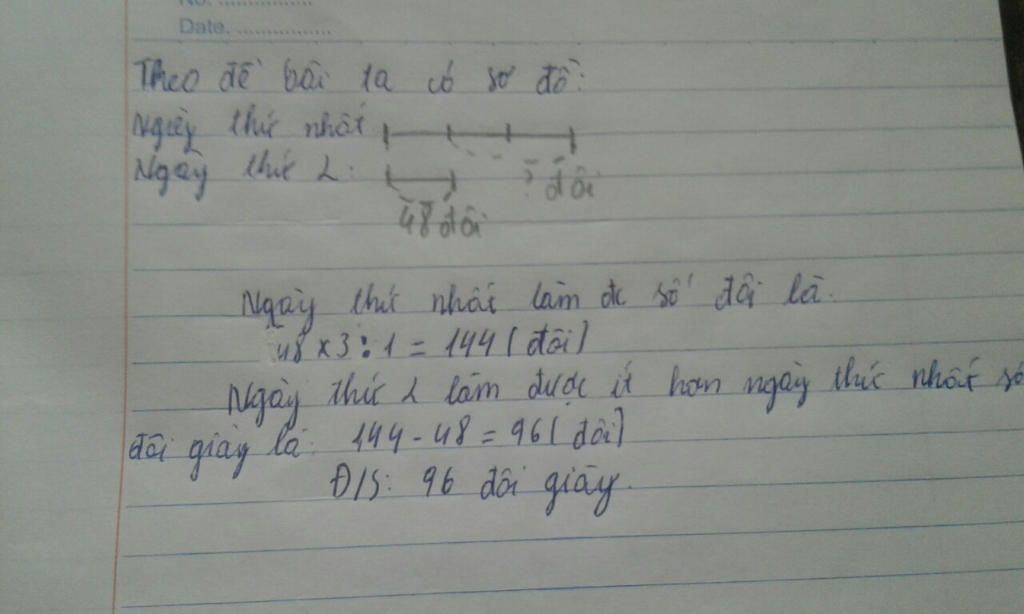 No. ................
Date. ................
Theo đề bài ta có sơ đồ:
Ngày thứ nhất
Ngày thứ 2:
? đôi
48 đôi
Ngày thứ nhất làm đc số đôi là.
48 x 3 : 1 = 144 (đôi)
Ngày thứ 2 làm được ít hơn ngày thứ nhất số
đôi giày là: 144 - 48 = 96 (đôi)
Đ/S: 96 đôi giày.